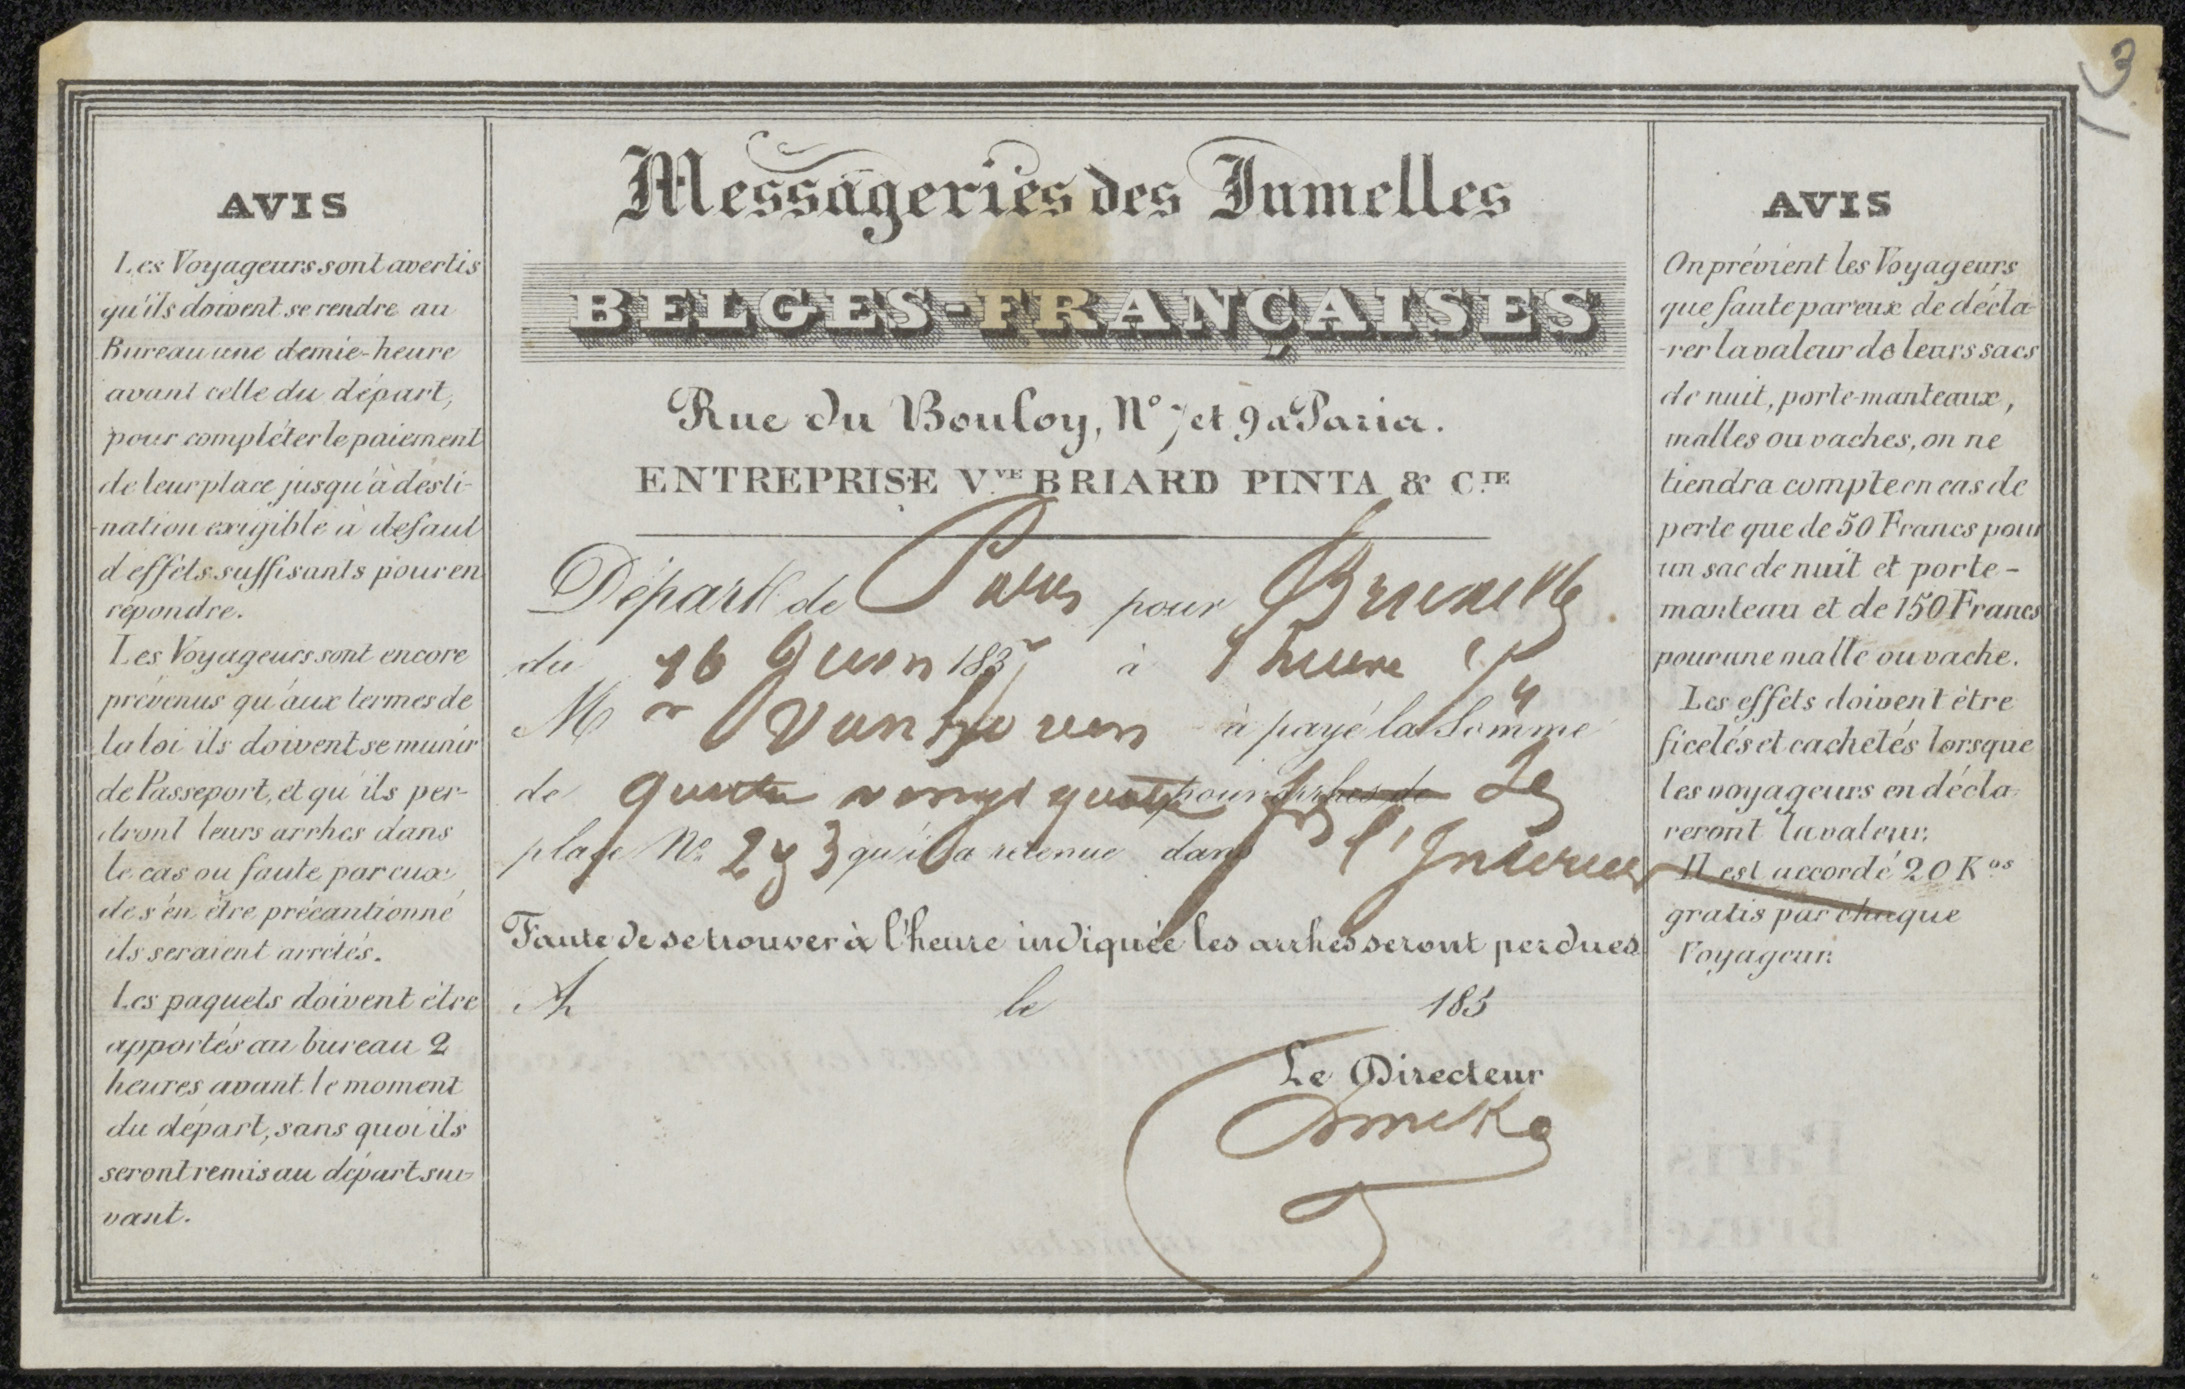 3
AVIS
Les Voyageurs sont avertis
qu'ils doivent se rendre au
Bureau une demie-heure
avant celle du départ,
pour compléter le paiement
de leur place jusqu'à desti-
-nation exigible à defaut
d'effets suffisants pour en
répondre.
Les Voyageurs sont encore
prévenus qu'aux termes de
la loi ils doivent se munir
de Passeport, et qu'ils per-
dront leurs arrhes dans
le cas ou faute par eux
de s'en être précautionné
ils seraient arrêtés.
Les paquets doivent être
apportés au bureau 2
heures avant le moment
du départ, sans quoi ils
seront remis au départ sui-
vant.
Messageries des Jumelles
BELGES-FRANÇAISES
Rue du Bouloy, N° 7 et 9 à Paris.
ENTREPRISE Vve BRIARD PINTA & Cie
Départ de Paris pour Bruxelles
du 16 Juin 1837 à 1 heure
Mr à payé la Somme
de quatre vingt quatre pour arrhes de
place No 2 & 3 qu'il a retenue dans l'Interieur
Faute de se trouver à l'heure indiquée les arrhes seront perdues
A le 183
Le Directeur
AVIS
On prévient les Voyageurs
que faute par eux de décla-
-rer la valeur de leurs sacs
de nuit, porte-manteaux,
malles ou vaches, on ne
tiendra compte en cas de
perte que de 50 Francs pour
un sac de nuit et porte-
manteau et de 150 Francs
pour une malle ou vache.
Les effets doivent être
ficelés et cachetés lorsque
les voyageurs en décla-
reront la valeur.
Il est accordé 20 Kos
gratis par chaque
Voyageur.